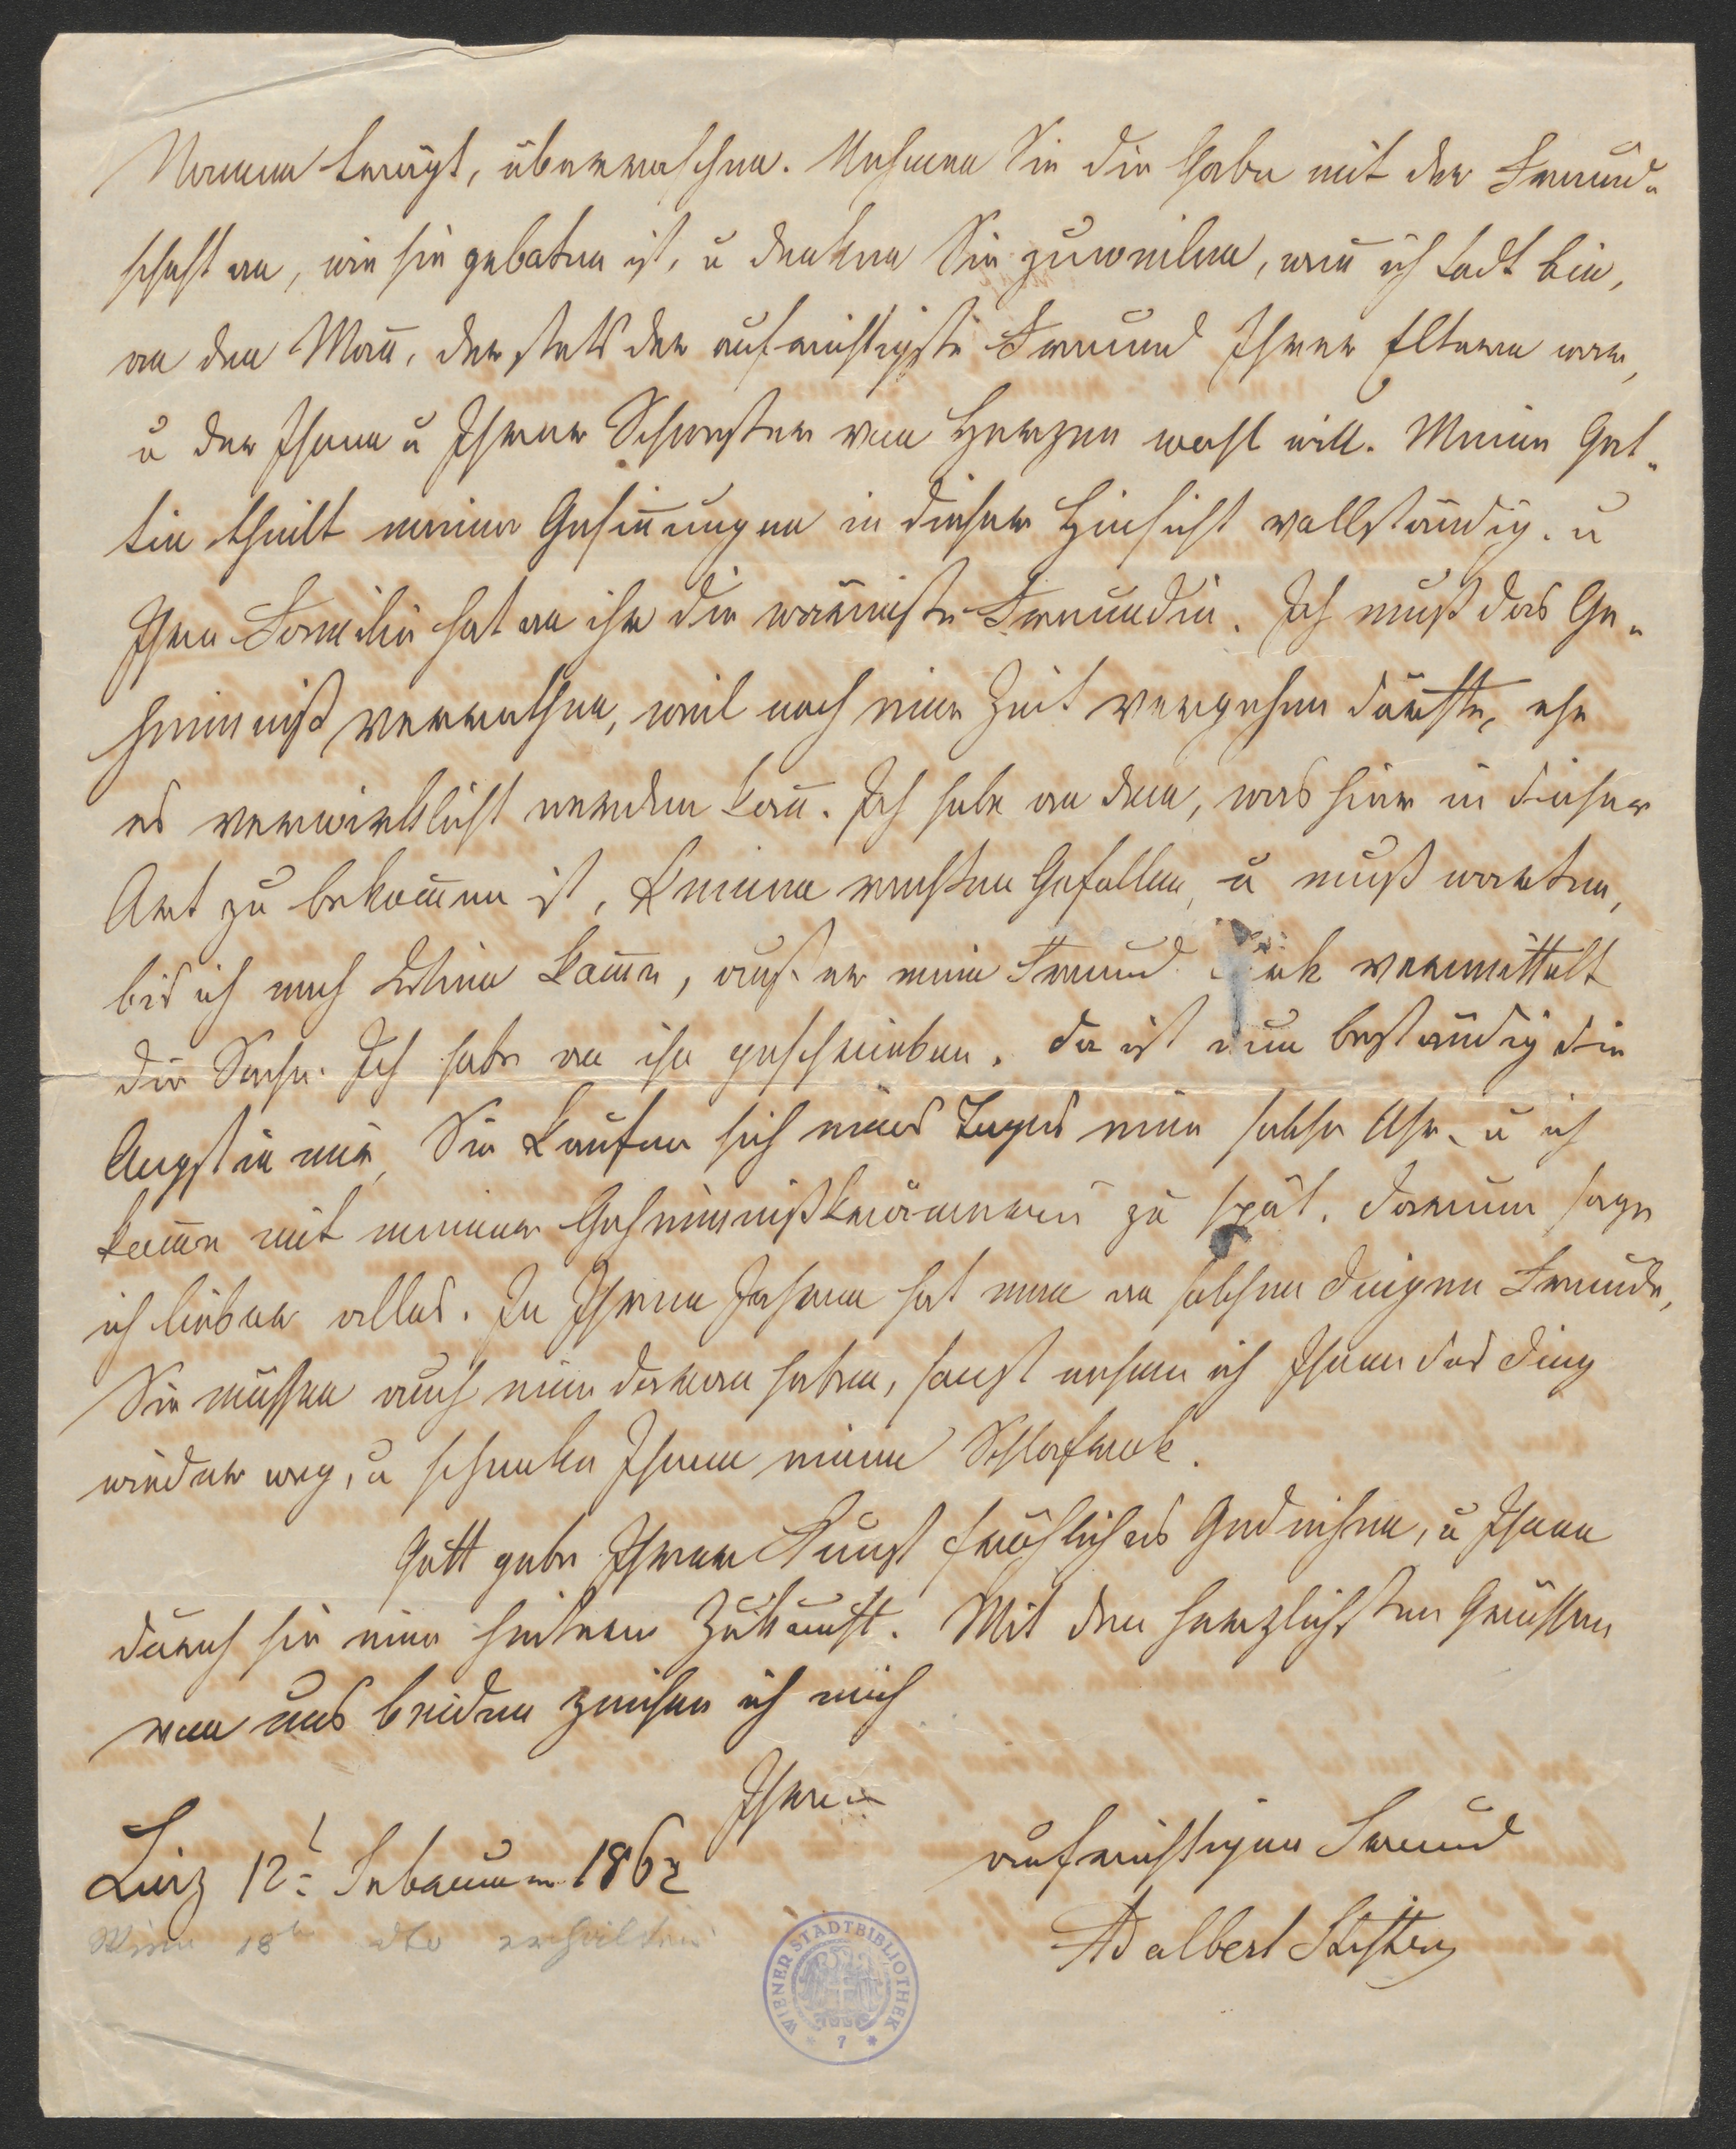 Namen trägt, überraschen. Nehmen Sie die Gabe mit der Freund„
schaft an, wie sie gebothen ist, u denken Sie zuweilen, wen̄ ich todt bin,
an den Man̄, der stets der aufrichtigste Freund Ihrer Eltern war,
u der Ihnen u Ihrer Schwester von Herzen wohl will. Meine Gat„
tin theilt meine Gesin̄ungen in dieser Hinsicht vollständig. u
Ihre Familie hat an ihr die wärmste Freundin. Ich muß das Ge„
heimniß verrathen, weil noch eine Zeit vergehen dürfte, ehe
es verwirklicht werden kan̄. Ich habe an dem, was hier in dieser
Art zu bekom̄en ist, keinen rechten Gefallen, u muß warten,
bis ich nach Wien kom̄e, außer mein Freund vermittelt
die Sache. Ich habe an ihn geschrieben. Da ist nun beständig die
Angst in mir, Sie kaufen sich eines Tages eine solche Uhr, u ich
kom̄e mit meiner Geheimnißkrämerei zu spät. Darum sage
ich lieber alles. In Ihren Jahren hat man an solchen Dingen Freude,
Sie müssen auch eine daran haben, sonst nehme ich Ihnen das Ding
wieder weg, u schenke Ihnen einen Schlafrok.
Gott gebe Ihrer Kunst fröhliches Gedeihen, u Ihnen
durch sie eine heitere Zukunft. Mit den herzlichsten Grüssen
von uns beiden zeichne ich mich
Ihren
aufrichtigen Freund
Linz 12t Februar 1862
Adalbert Stifter
Wien 18t dto erhalten
WIENER STADTBIBLIOTHEK
* 7 *